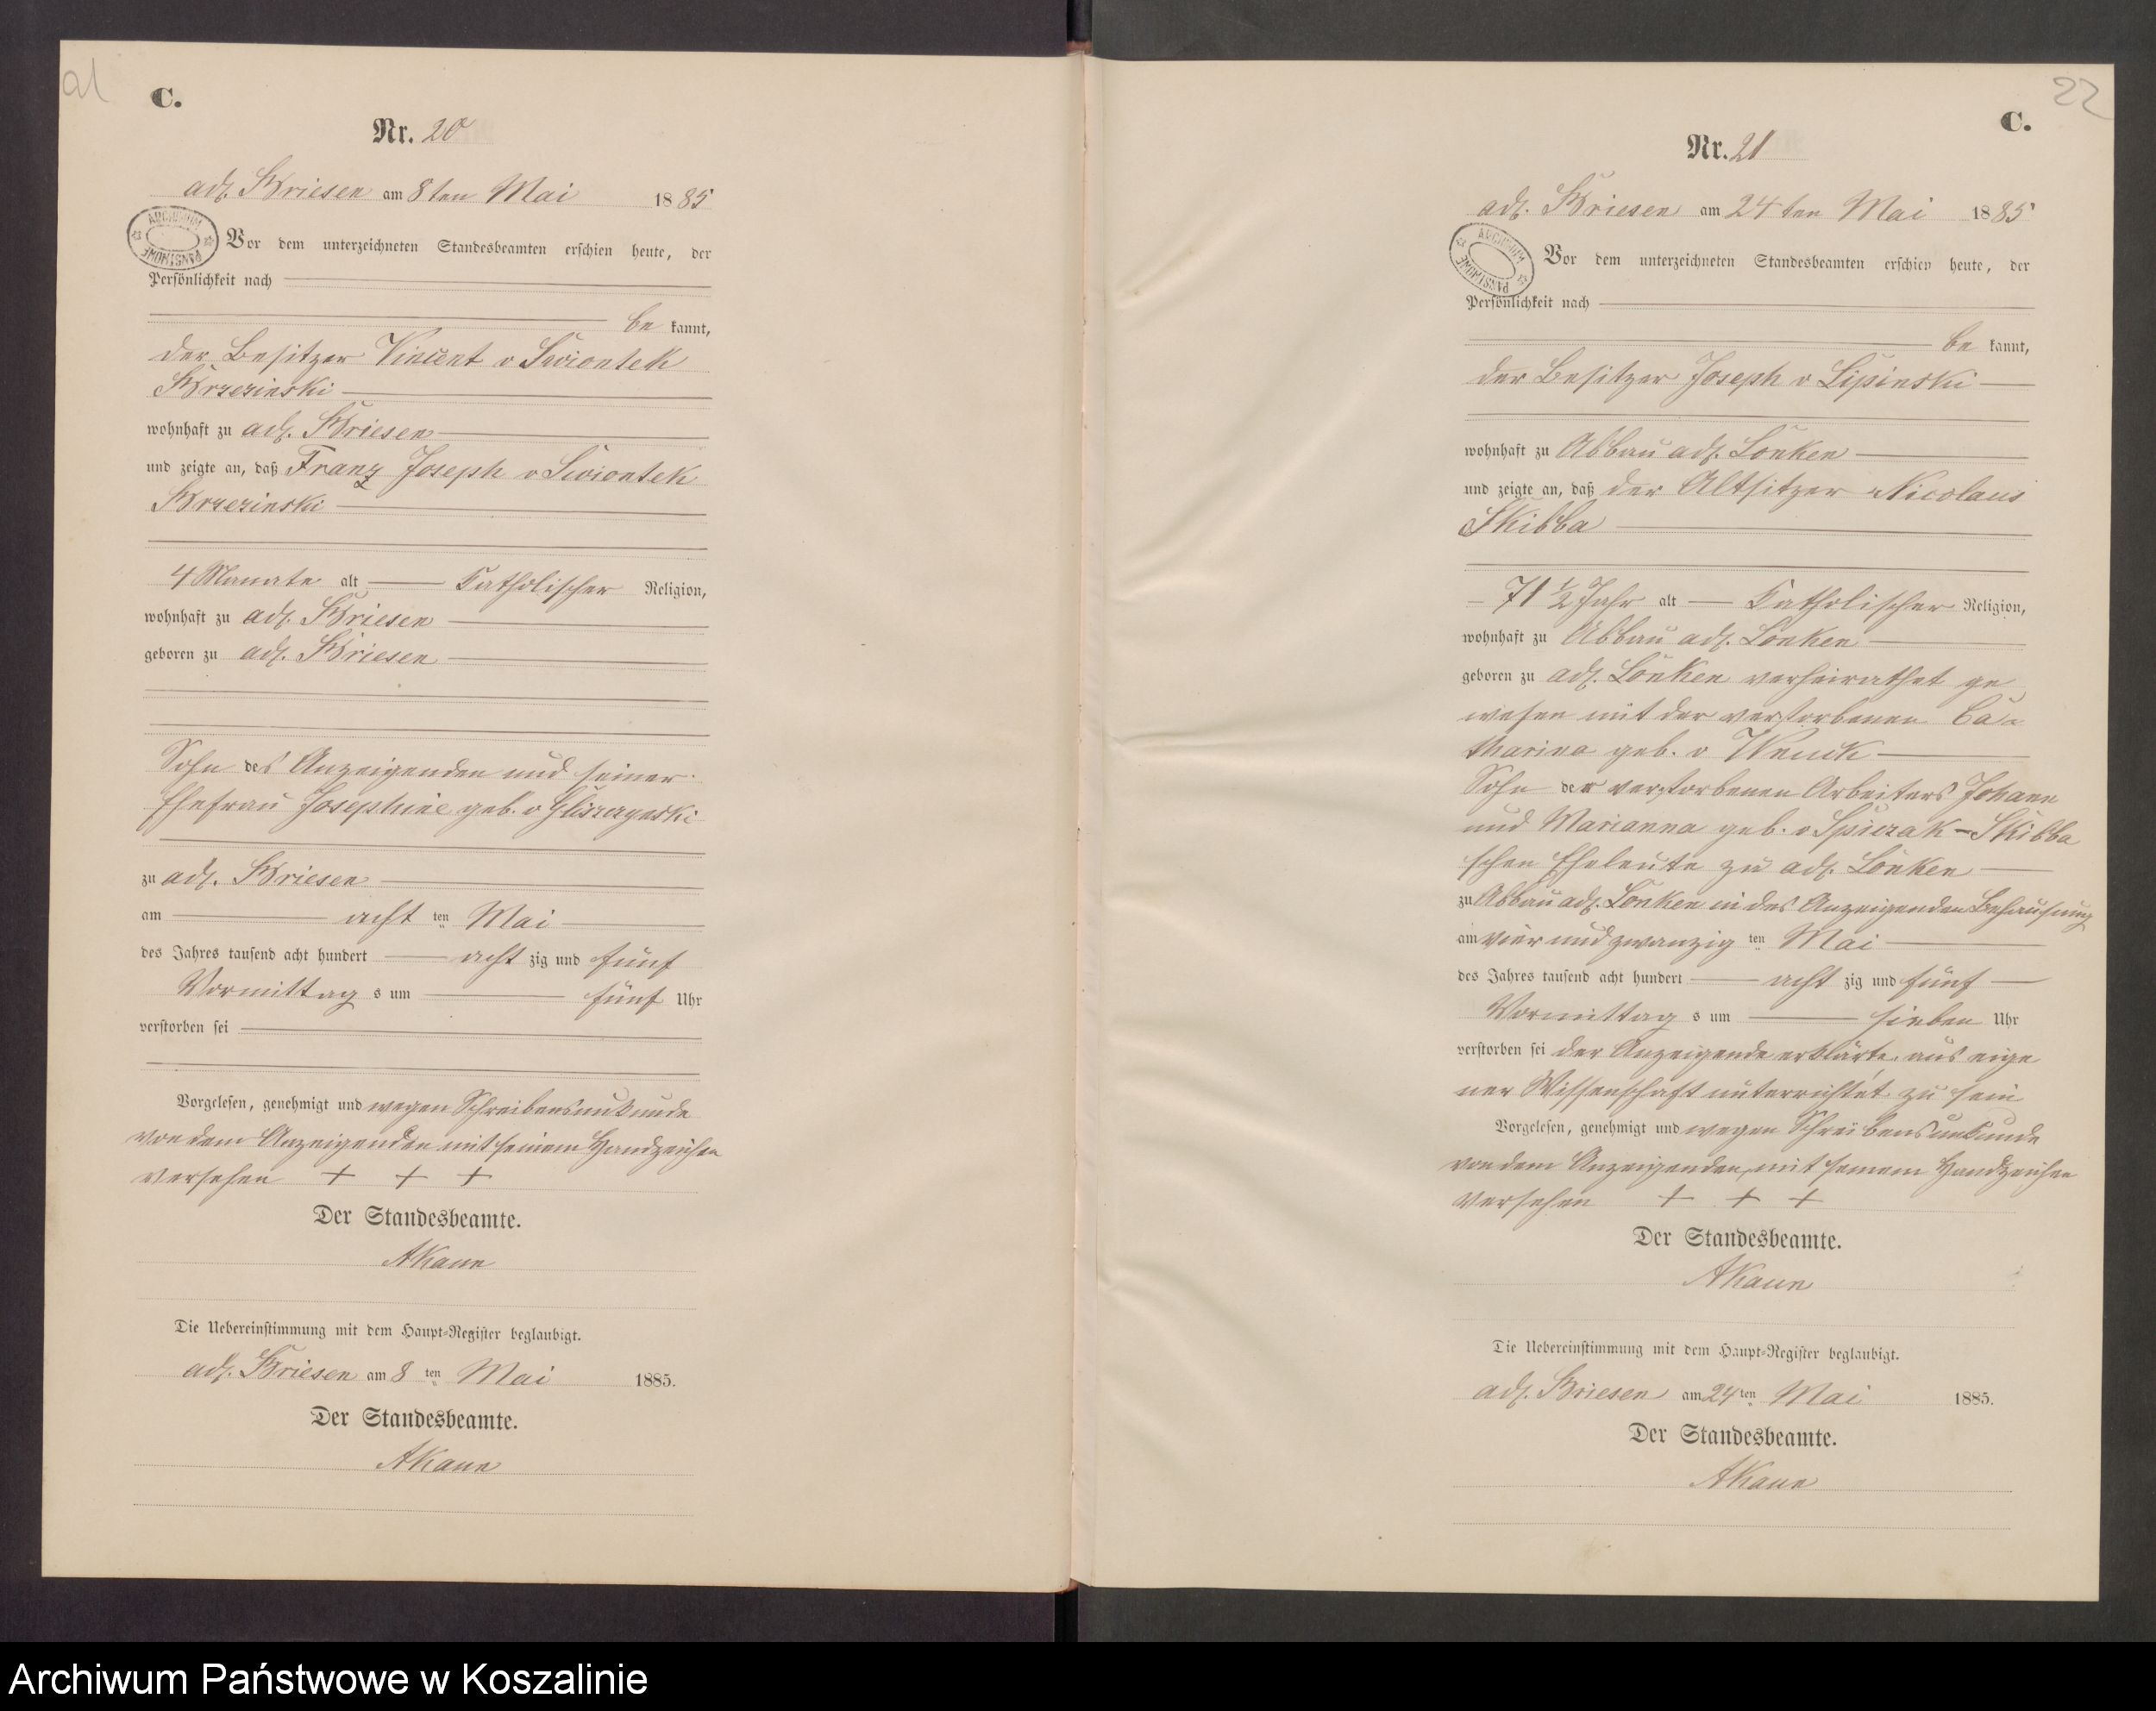 21
C.
Nr. 20
adl. Briesen am 8ten Mai 1885
ARCHIWUM PAŃSTWOWE
Vor dem unterzeichneten Standesbeamten erschien heute, der
Persönlichkeit nach
be kannt,
der Besitzer Vincent v Swiontek
Brzezinski
wohnhaft zu adl. Briesen
und zeigte an, daß Franz Joseph v Swiontek
Brzezinski
4 Monate alt Katholischer Religion,
wohnhaft zu adl. Briesen
geboren zu adl. Briesen
Sohn des Anzeigenden und seiner
Ehefrau Josephine geb. v
zu adl. Briesen
am acht ten Mai
des Jahres tausend acht hundert acht zig und fünf
Vormittag s um fünf Uhr
verstorben sei
Vorgelesen, genehmigt und wegen Schreibensunkunde
von dem Anzeigenden mit seinem Handzeichen
versehen + + +
Der Standesbeamte.
AKaun
Die Uebereinstimmung mit dem Haupt-Register beglaubigt.
adl. Briesen am 8 ten Mai 1885.
Der Standesbeamte.
AKaun
22
C.
Nr. 21
adl. Briesen am 24ten Mai 1885
ARCHIWUM PAŃSTWOWE
Vor dem unterzeichneten Standesbeamten erschien heute, der
Persönlichkeit nach
be kannt,
der Besitzer Joseph v Lipinski
wohnhaft zu Abbau adl. Lonken
und zeigte an, daß der Altsitzer Nicolaus
Skibba
71 1/2 Jahr alt Katholischer Religion,
wohnhaft zu Abbau adl. Lonken
geboren zu adl. Lonken verheirathet ge
wesen mit der verstorbenen Ca
tharina geb. v Wenck
Sohn der verstorbenen Arbeiters Johann
und Marianna geb. v Spiczak - Skibba
schen Eheleute zu adl. Lonken
zu Abbau adl. Lonken in des Anzeigenden Behausung
am vier und zwanzig ten Mai
des Jahres tausend acht hundert acht zig und fünf
Vormittag s um sieben Uhr
verstorben sei der Anzeigende erklärte, aus eige
ner Wissenschaft unterrichtet zu sein
Vorgelesen, genehmigt und wegen Schreibensunkunde
von dem Anzeigenden, mit seinem Handzeichen
versehen + + +
Der Standesbeamte.
AKaun
Die Uebereinstimmung mit dem Haupt-Register beglaubigt.
adl. Briesen am 24 ten Mai 1885.
Der Standesbeamte.
AKaun
Archiwum Państwowe w Koszalinie